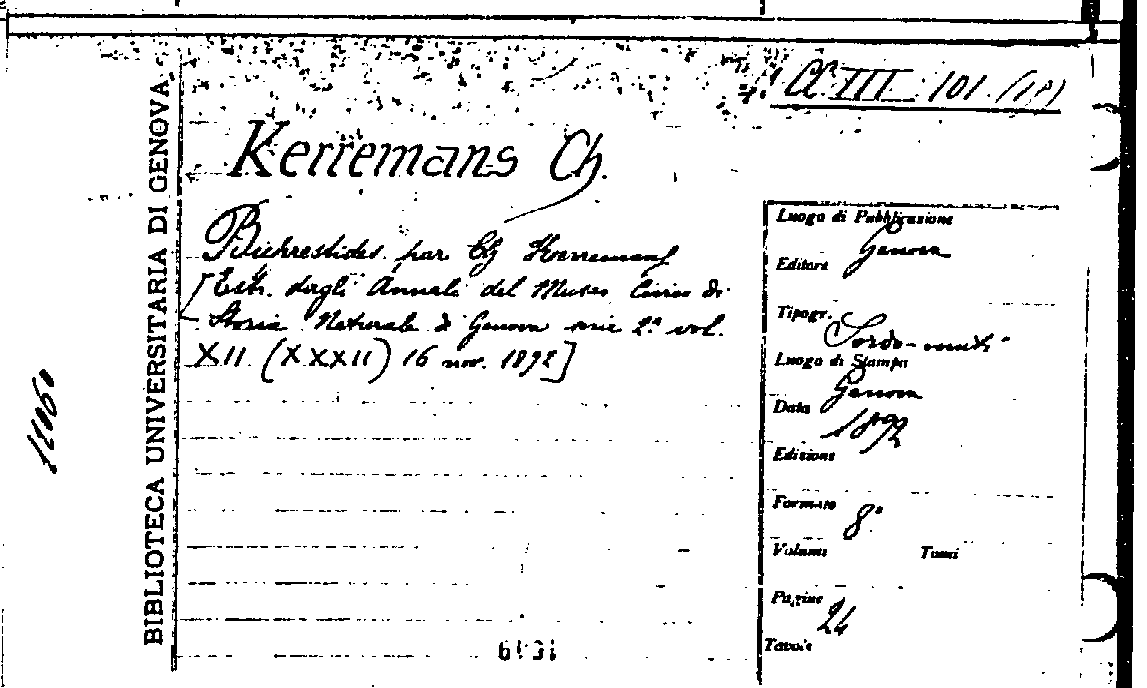 CC III 101. (18)
Kerremans Ch.
Buprestides par Ch Kerremans
[Estr. dagli Annali del Museo Civico di
Storia Naturale di Genova serie 2ª vol.
XII (XXXII) 16 nov. 1892]
BIBLIOTECA UNIVERSITARIA DI GENOVA
Luogo di Pubblicazione
Genova
Editore
Tipogr.
Sordo-muti
Luogo di Stampa
Genova
Data
1892
Edizione
Formato
8°
Volumi Tomi
Pagine
24
Tavole